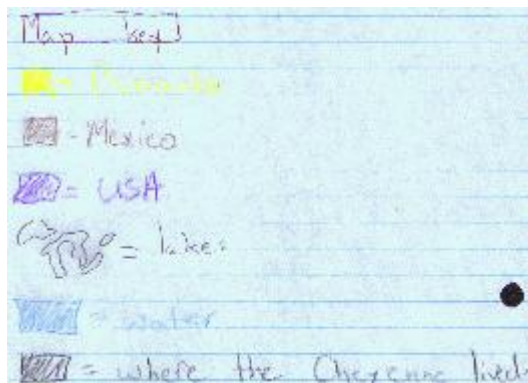 Map key
- Mexico
= USA
= lakes
= water
= where the Cheyenne lived